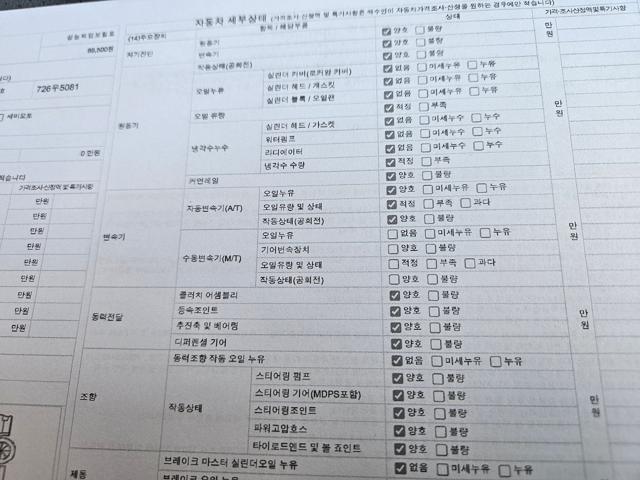 자동차 세부상태 (가격조사·산정액 및 특기사항은 매수인이 자동차가격조사·산정을 원하는 경우에만 적습니다)
성능책임보험료 (14)주요장치 항목 / 해당부품 상태 가격·조사산정액및특기사항
원동기 ☑양호 ☐불량
자기진단 변속기 ☑양호 ☐불량
작동상태(공회전) ☑양호 ☐불량
실린더 커버(로커암 커버) ☑없음 ☐미세누유 ☐누유
오일누유 실린더 헤드 / 개스킷 ☑없음 ☐미세누유 ☐누유
726우5081 실린더 블록 / 오일팬 ☑없음 ☐미세누유 ☐누유
오일 유량 ☑적정 ☐부족 만원
세미오토
원동기 실린더 헤드 / 가스켓 ☑없음 ☐미세누수 ☐누수
워터펌프 ☑없음 ☐미세누수 ☐누수
0 만원 냉각수누수 라디에이터 ☑없음 ☐미세누수 ☐누수
냉각수 수량 ☑적정 ☐부족
적습니다 커먼레일 ☑양호 ☐불량
가격조사·산정액 및 특기사항 오일누유 ☑양호 ☐미세누유 ☐누유
만원 자동변속기(A/T) 오일유량 및 상태 ☑적정 ☐부족 ☐과다
만원 작동상태(공회전) ☑양호 ☐불량
만원 변속기 오일누유 ☐없음 ☐미세누유 ☐누유 만원
만원 기어변속장치 ☐양호 ☐불량
만원 수동변속기(M/T) 오일유량 및 상태 ☐적정 ☐부족 ☐과다
만원 작동상태(공회전) ☐양호 ☐불량
만원 클러치 어셈블리 ☑양호 ☐불량
만원 등속조인트 ☑양호 ☐불량
만원 동력전달 추진축 및 베어링 ☑양호 ☐불량 만원
디퍼렌셜 기어 ☑양호 ☐불량
동력조향 작동 오일 누유 ☑없음 ☐미세누유 ☐누유
스티어링 펌프 ☑양호 ☐불량
조향 스티어링 기어(MDPS포함) ☑양호 ☐불량 만원
작동상태 스티어링조인트 ☑양호 ☐불량
파워고압호스 ☑양호 ☐불량
타이로드엔드 및 볼 죠인트 ☑양호 ☐불량
제동 브레이크 마스터 실린더오일 누유 ☑없음 ☐미세누유 ☐누유
브레이크 오일 누유